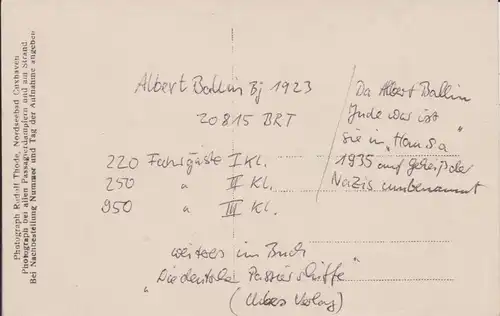 Photograph Rudolf Thode, Nordseebad Cuxhaven
Photograph bei allen Passagierdampfern und am Strand
Bei Nachbestellung Nummer und Tag der Aufnahme angeben
Albert Ballin Bj 1923
20815 BRT
220 Fahrgäste I Kl.
250 " II Kl.
950 " III Kl.
Da Albert Ballin
Jude war ist
sie in "Hansa"
1935 auf Geheiß der
Nazis umbenannt
weiteres im Buch
"Die deutschen Passagierschiffe"
Verlag)